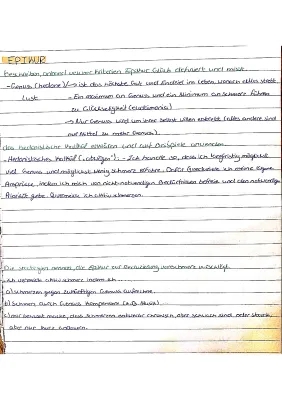 EPIKUR
Beschreiben, anhand welcher Kriterien Epikur Glück definiert und misst.
- Genuss (hedone) → ist das höchste Gut und Endziel im Leben, wonach alles strebt
Lust → Ein maximum an Genuss und ein Minimum an Schmerz führen
zu Glückseligkeit (eudaimonia)
→ Nur Genuss wird um ihrer selbst willen erstrebt (alles andere sind
nur Mittel zu mehr Genuss).
Das hedonistische Kalkül erläutern und auf Beispiele anwenden
- Hedonistisches Kalkül : - Ich handle so, dass ich langfristig möglichst
viel Genuss und möglichst wenig Schmerz erfahre. Dafür ich meine eigene
Ansprüche, indem ich mich von nicht-notwendigen Bedürfnissen befreie und den notwendigen
gebe. ich Schmerzen.
Die Strategien nennen, die Epikur zur Reduzierung von Schmerz vorschlägt.
- Ich vermeide Schmerz indem ich ...
a) Schmerzen gegen zukünftigen Genuss aufrechne.
b) Schmerz durch Genuss kompensiere (z.B. Musik).
c) mir bewusst mache, dass Schmerzen entweder chronisch, aber schwach sind oder stark,
aber nur kurz andauern.